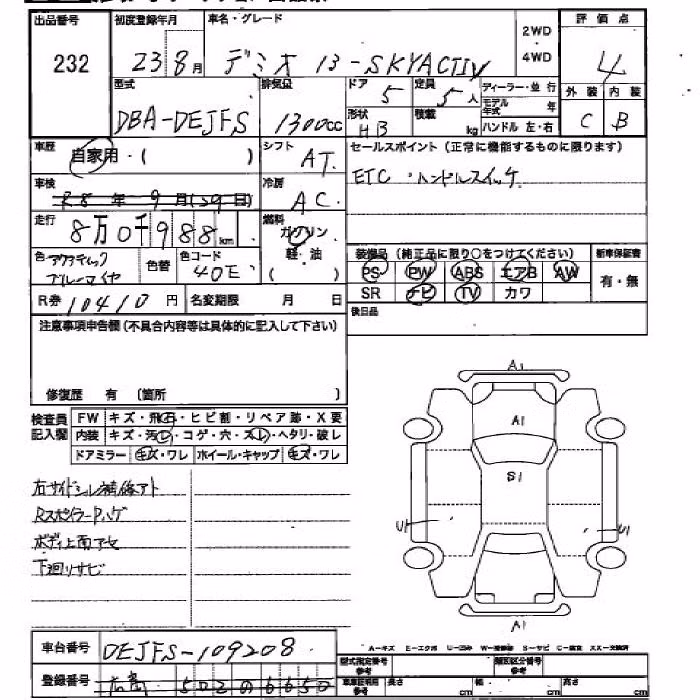 出品番号 初度登録年月 車名・グレード 2WD 4WD 評価点
232 23 8月 デミオ 13-SKYACTIV 4
型式 排気量 ドア 定員 ディーラー・並行 外装 内装
DBA-DEJFS 1300cc 5 5人 モデル年式 年 C B
形状 積載 ハンドル 左・右
HB kg
車歴 自家用・( ) シフト AT セールスポイント(正常に機能するものに限ります)
車検 R8年9月(29日) 冷房 AC ETC・ハンドルスイッチ
走行 8万0千988km 燃料 ガソリン
軽・油 ( )
色 アクアティックブルーマイカ 色替 色コード 40E 装備品(純正品に限り○をつけてください) 新車保証書
PS PW ABS エアB AW 有・無
SR ナビ TV カワ
R券 10410円 名変期限 月 日
後日品
注意事項申告欄(不具合内容等は具体的に記入して下さい)
修復歴 有 (箇所 )
検査員記入欄 FW キズ・飛石・ヒビ割・リペア跡・X要
内装 キズ・汚レ・コゲ・穴・スレ・ヘタリ・破レ
ドアミラー キズ・ワレ ホイール・キャップ キズ・ワレ
A1
A1
S1
U1 U1
A1
右サイドシル補修アト
RスポイラーPハゲ
ボディ上面アセ
下廻りサビ
車台番号 DEJFS-109208
A-キズ E-エクボ U-凹み W-補修跡 S-サビ C-腐食 XX-交換済
型式指定番号参考 類別区分番号参考
登録番号 広島 502の6650
車庫証明用参考 長さ cm 幅 cm 高さ cm